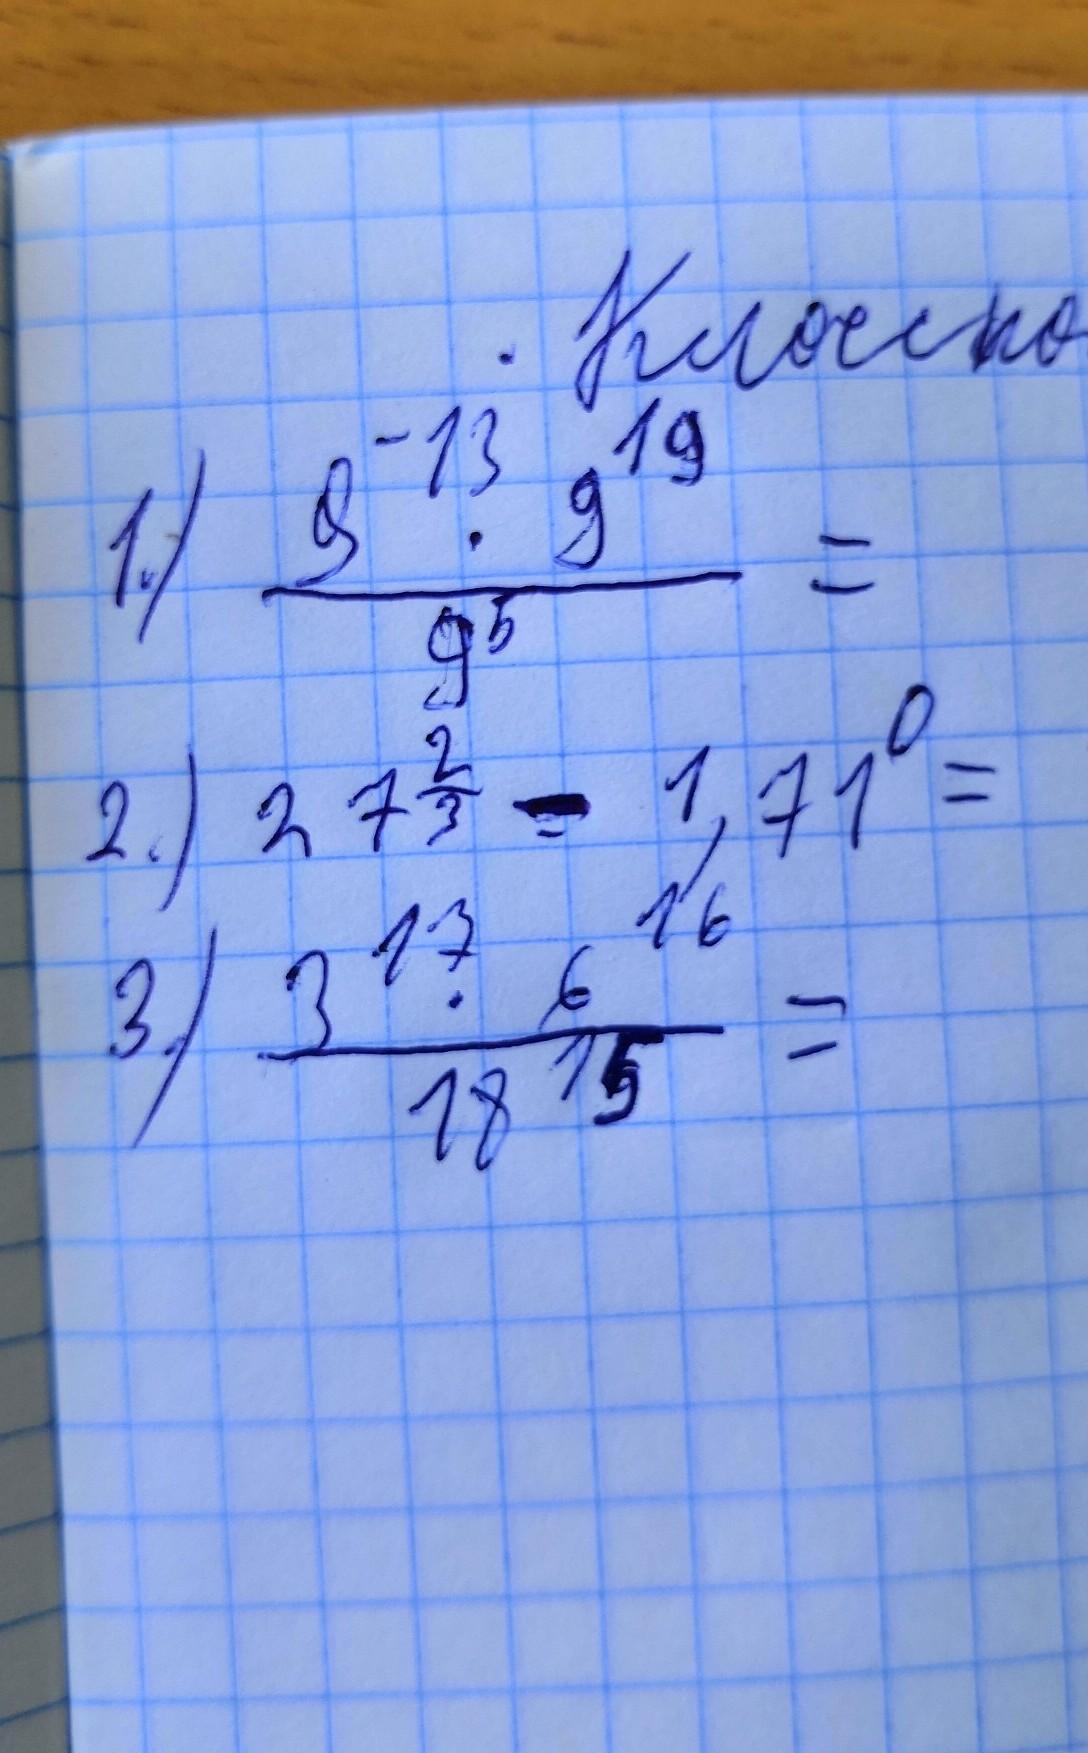 Классно
1.) 9^-13 · 9^19 / 9^5 =
2.) 27^2/3 - 1,71^0 =
3.) 3^17 · 6^16 / 18^15 =